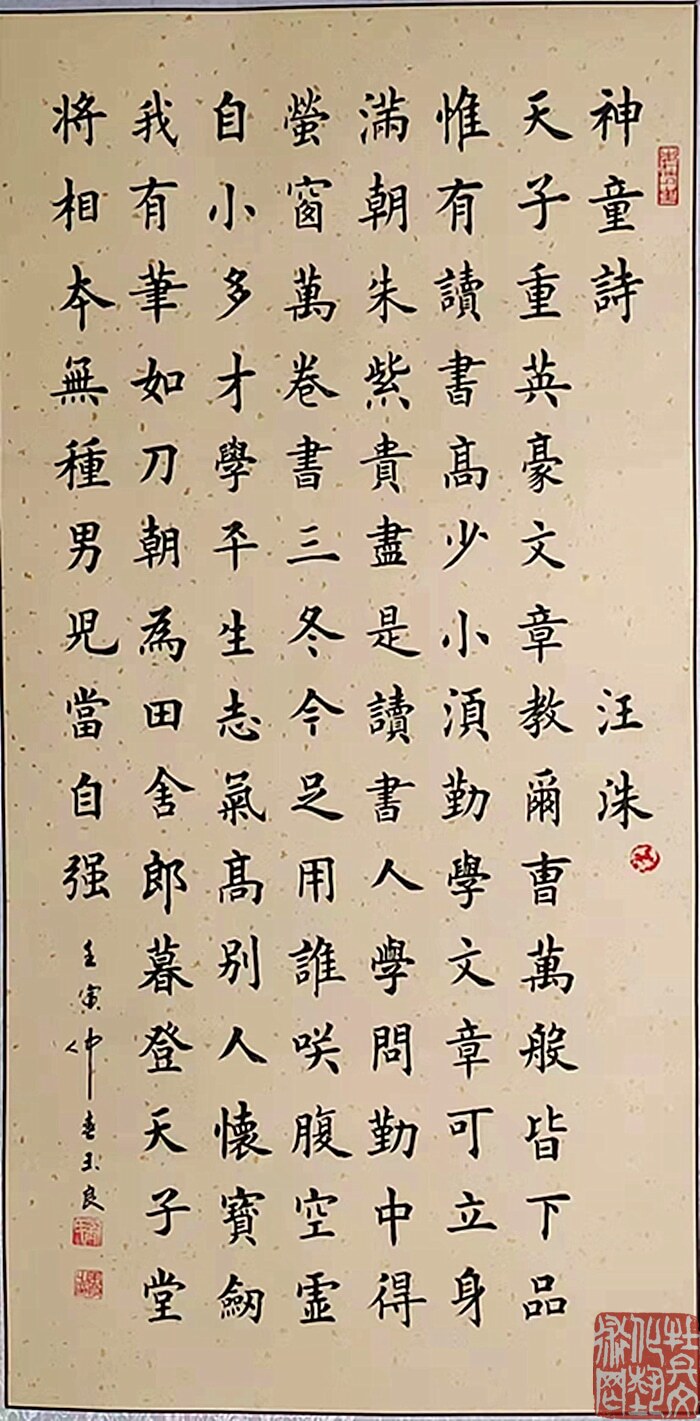 神童詩 汪洙
天子重英豪文章教爾曹萬般皆下品
惟有讀書髙少小湏勤學文章可立身
滿朝朱紫貴盡是讀書人學問勤中得
螢窗萬卷書三冬今足用誰咲腹空虛
自小多才學平生志氣髙别人懷寶劒
我有筆如刀朝為田舍郎暮登天子堂
将相夲無種男児當自强
壬寅仲春玉良